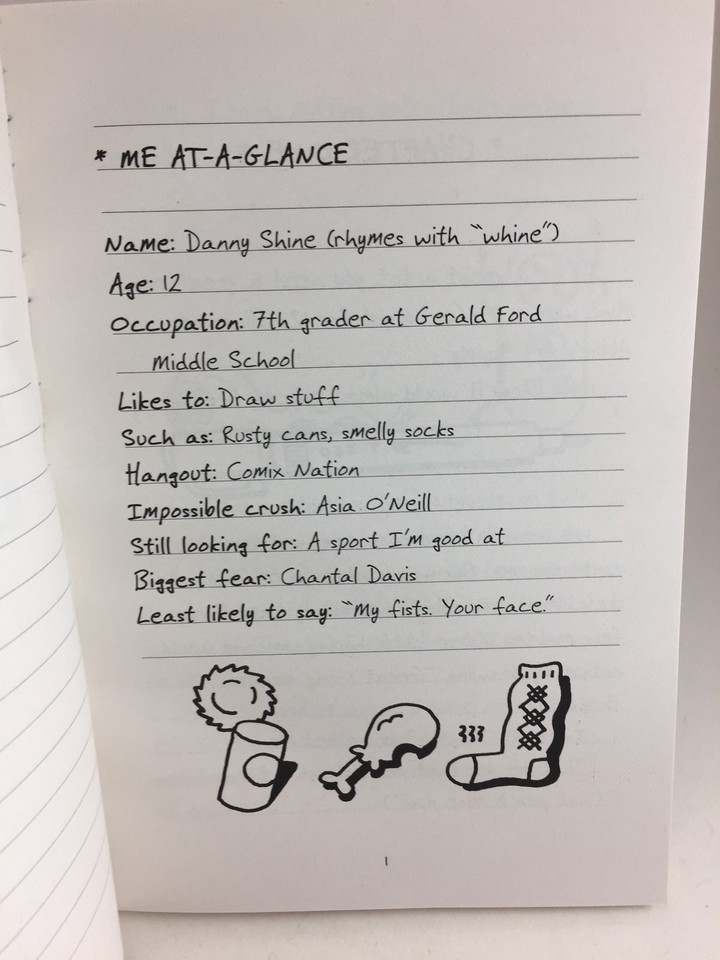 * ME AT-A-GLANCE
Name: Danny Shine (rhymes with "whine")
Age: 12
Occupation: 7th grader at Gerald Ford
Middle School
Likes to: Draw stuff
Such as: Rusty cans, smelly socks
Hangout: Comix Nation
Impossible crush: Asia O'Neill
Still looking for: A sport I'm good at
Biggest fear: Chantal Davis
Least likely to say: "My fists. Your face."
1